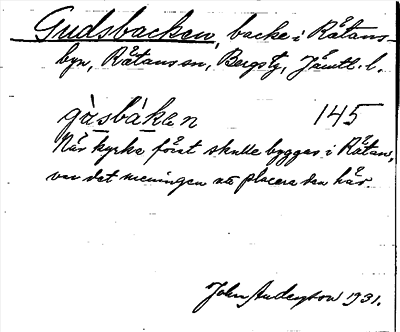 Gudsbacken, backe i Råtans-
byn, Råtans sn, Bergs tg, Jämtl. l.
gùsbàkɛn 145
När kyrka först skulle byggas i Råtan,
var det meningen att placera den här.
John Anderson 1931.